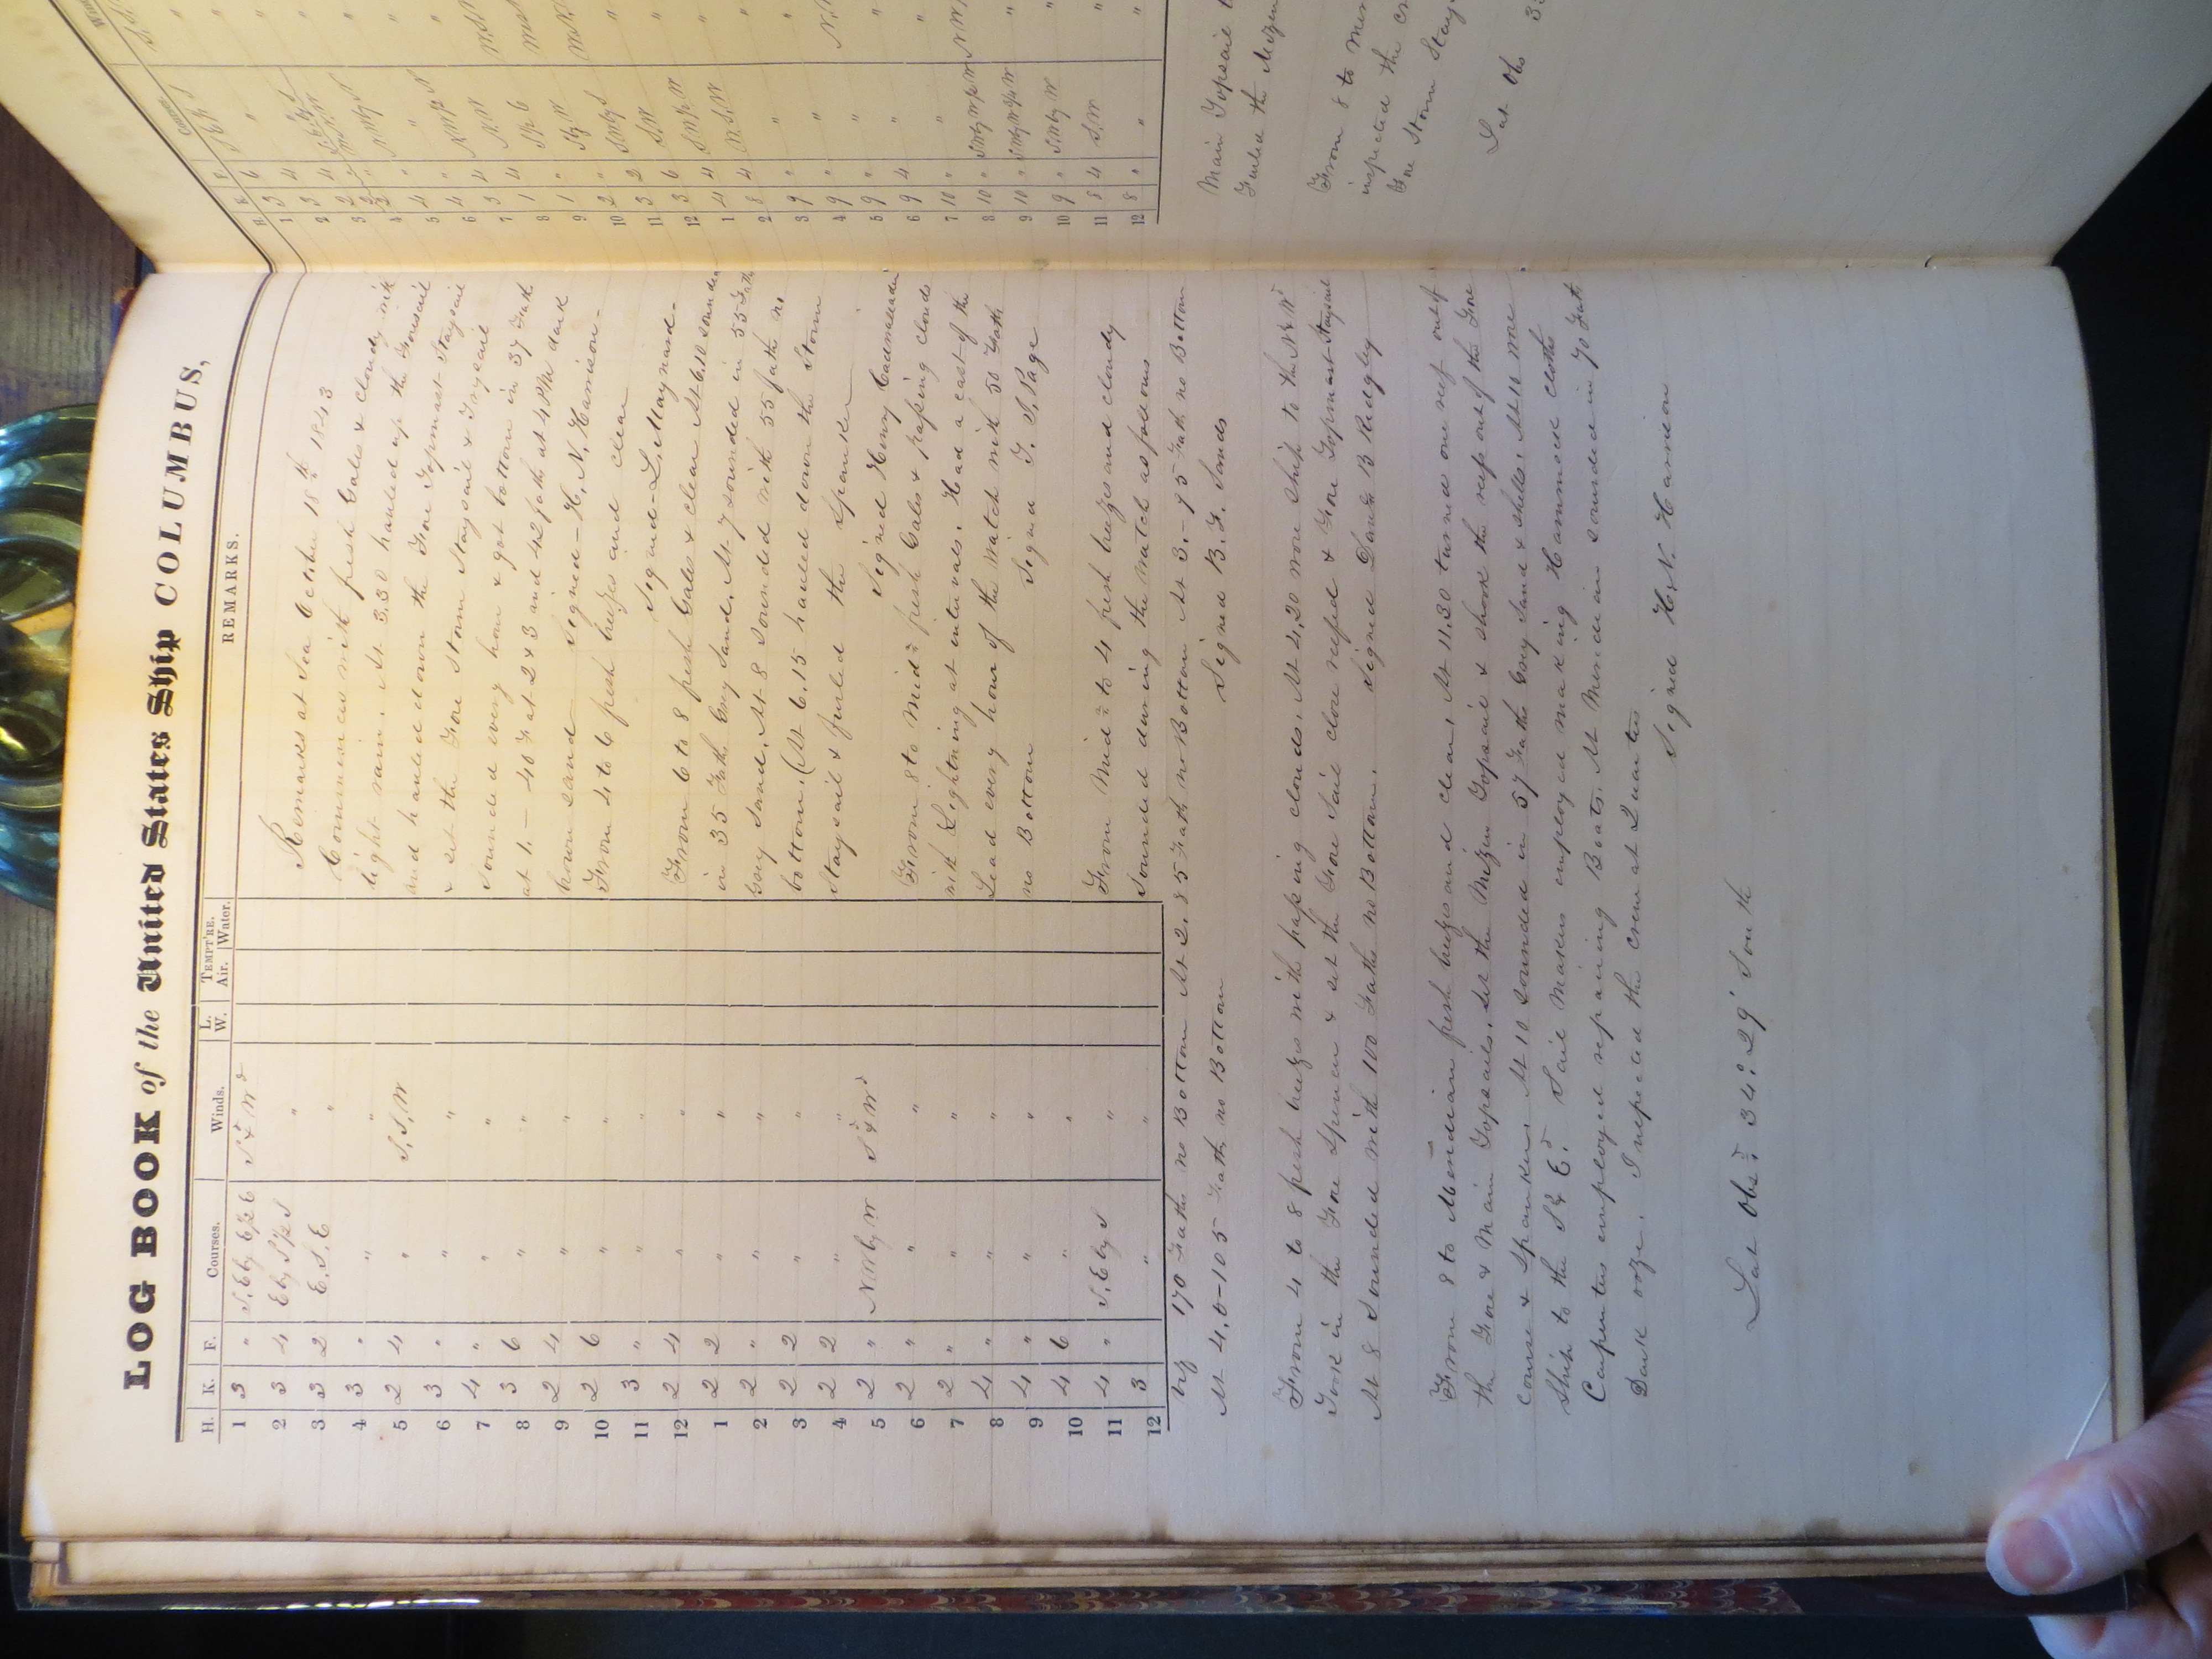 LOG BOOK of the United States Ship COLUMBUS,
H. K. F. Courses. Winds. L. W. TEMPT'RE. Air. Water. REMARKS.
1 3 " S.E by E½E S.d & W.d
2 3 4 E by S½S "
3 3 2 E.S.E "
4 3 " " "
5 2 4 " S.S.W
6 3 " " "
7 4 " " "
8 3 6 " "
9 2 4 " "
10 2 6 " "
11 3 " " "
12 2 4 " "
1 2 2 " "
2 2 " " "
3 2 2 " "
4 2 2 " "
5 2 " NW by W S.d & W.d
6 2 " " "
7 2 " " "
8 4 " " "
9 4 " " "
10 4 6 " "
11 4 " S.E by S "
12 3 " " "
Remarks at Sea October 18th 1843
Commences with fresh Gales & cloudy with
light rain. At 3.30 hauled up the Foresail
and hauled down the Fore Topmast Staysail
& set the Fore Storm Staysail & Trysail
Sounded every hour & got bottom in 37 Fath
at 1. — 40 F at 2 & 3 and 42 Fath at 4 PM dark
brown sand Signed — H. N. Harrison —
From 4 to 6 fresh breezes and clear
Signed — L. Maynard —
From 6 to 8 fresh Gales & clear At 6.10 sounded
in 35 Faths Grey Sand. At 7 sounded in 55 Fath
Grey Sand. At 8 Sounded with 55 fath no
bottom. (At 6.15 hauled down the Storm
Staysail & furled the Spanker
Signed Henry Cadwalader
From 8 to Mid.t fresh Gales & passing clouds
with Lightning at intervals. Had a cast of the
Lead every hour of the Watch with 50 Fath
no Bottom Signed T. J. Page
From Mid.t to 4 fresh breezes and cloudy
Sounded during the Watch as follows
170 Faths no Bottom At 2. 85 Fath no Bottom At 3 — 95 Fath no Bottom
At 4.0 — 105 Fath no Bottom Signed B. F. Sands
From 4 to 8 fresh breezes with passing clouds. At 4.20 wore Ship to the N & W.d
Took in the Fore Spencer & set the Fore Sail close reefed & Fore Topmast Staysail
At 8 Sounded with 100 Faths no Bottom. Signed B Ridgley
From 8 to Meridian fresh breezes and clear. At 11.30 turned one reef out of
the Fore & Main Topsails. Set the Mizen Topsail & shook the reef out of the Fore
course & Spanker. At 10 sounded in 57 Faths Grey Sand & shells. At 10 wore
Ship to the S & E.d Sail Makers employed making Hammock Cloths
Carpenters employed repairing Boats. At Meridian sounded in 70 Fath
Dark ooze. Inspected the crew at Quarters
Signed H. N. Harrison
Lat Obs.d 34° 29' South
H. K. F. Courses
1 3 6
2 3 4
3 2
4 2
5 4 "
6 4 "
7 3 4
8 1 4
9 1 "
10 2 "
11 3 2
12 3 6
1 4 4
2 8 4
3 9 "
4 9 "
5 9 "
6 9 4
7 10 "
8 10 "
9 10 "
10 9 "
11 8 4
12 8 "
Main Topsail
Furled the Mizen
From 8 to Mer
inspected the cr
Fore Storm Stays
Lat Obs 3